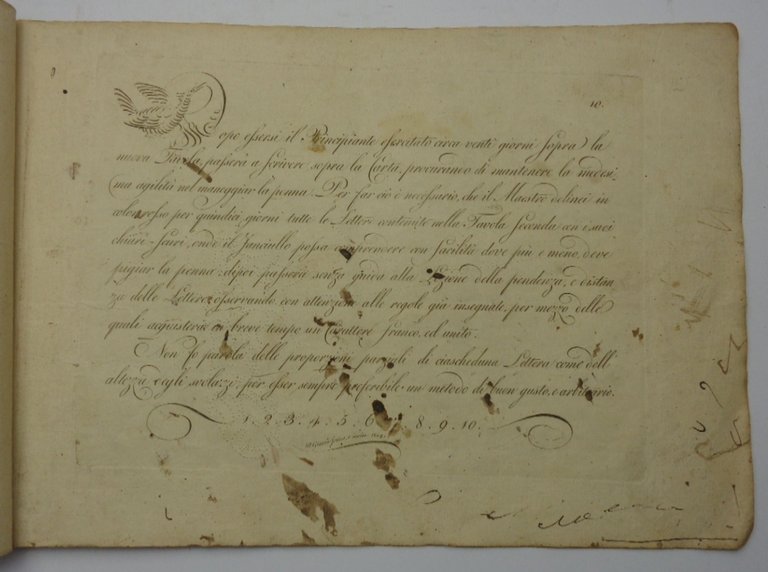 10.
Dopo essersi il Principiante esercitato circa venti giorni sopra la
nuova Tavola, passerà a scrivere sopra la Carta, procurando di mantenere la medesi,
ma agilità nel maneggiar la penna. Per far ciò è necessario, che il Maestro delinei in
color rosso per quindici giorni tutte le Lettere contenute nella Tavola Seconda con i suoi
chiari-scuri, onde il Fanciullo possa comprendere con facilità dove più e meno deve
pigiar la penna: dipoi passerà senza guida alla Lezione della pendenza, e distan,
za delle Lettere, osservando con attenzione alle regole già insegnate, per mezzo delle
quali acquisterà in breve tempo un Carattere franco, ed unito.
Non fo parola delle proporzioni parziali di ciascheduna Lettera come dell'
altezza degli svolazzi, per esser sempre preferibile un metodo di buon gusto, e arbitrario.
1. 2. 3. 4. 5. 6. 8. 9. 10.